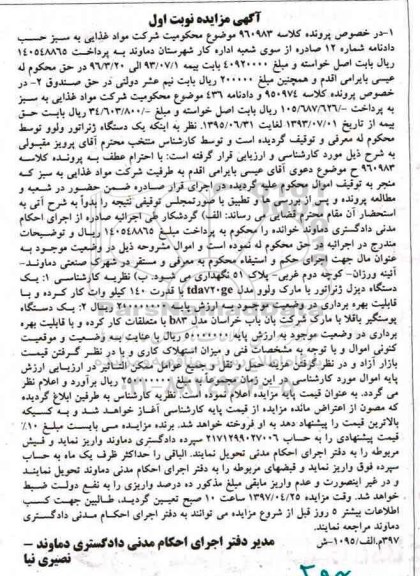 آگهی مزایده نوبت اول
۱-در خصوص پرونده کلاسه ۹۶۰۹۸۳ موضوع محکومیت شرکت مواد غذایی به سبز حسب
دادنامه شماره ۱۲ صادره از سوی شعبه اداره کار شهرستان دماوند به پرداخت ۱۴۰۵۴۸۸۶۵
ریال بابت اصل خواسته و مبلغ ۴۰۹۲۰۰۰۰ بابت بیمه ۹۳/۰۷/۱ الی ۹۶/۳/۲۰ در حق محکوم له
عیسی بایرامی اقدم و همچنین مبلغ ۲۰۰۰۰۰ ریال بابت نیم عشر دولتی در حق صندوق ۲- در
پرونده کلاسه ۹۵۰۹۷۴ و دادنامه ۴۳۶ موضوع محکومیت شرکت مواد غذایی به سبز
به پرداخت -/۱۰۵/۶۸۷/۶۲۶ ریال بابت اصل خواسته و مبلغ -/۳۴/۶۰۳/۸۰۰ ریال بابت حق
بیمه از تاریخ ۱۳۹۳/۰۷/۰۱ لغایت ۱۳۹۵/۰۶/۳۱. نظر به اینکه یک دستگاه ژنراتور ولوو توسط
محکوم له معرفی و توقیف گردیده است و توسط کارشناس منتخب محترم آقای پرویز مقبولی
به شرح ذیل مورد کارشناسی و ارزیابی قرار گرفته است: با احترام عطف به پرونده کلاسه
۹۶۰۹۸۳ ح موضوع دعوی آقای عیسی بایرامی اقدم به طرفیت شرکت مواد غذایی به سبز که
منجر به توقیف اموال محکوم علیه گردیده در اجرای قرار صادره ضمن حضور در شعبه و
مطالعه پرونده و پس از بررسی ها و تطبیق با صورتمجلس توقیفی نتیجه را بدواً به شرح آتی به
استحضار آن مقام محترم قضایی می رساند: الف) گردشکار طی اجرائیه صادره از اجرای احکام
مدنی دادگستری دماوند خوانده را محکوم به پرداخت مبلغ ۱۴۰۵۴۸۸۶۵ ریال و توضیحات
مندرج در اجرائیه در حق محکوم له نموده است و اموال مشروحه ذیل در وضعیت موجود به
عنوان مال جهت اجرای حکم و استیفاء محکوم به معرفی و مستقر در شهرک صنعتی دماوند-
آئینه ورزان- کوچه دوم غربی- پلاک ۵۱ نگهداری می شود. ب) نظریه کارشناسی ۱: یک
دستگاه دیزل ژنراتور با مارک ولوو مدل tdav۲۰ge با قدرت ۱۴۰ کیلو وات کار کرده و با
قابلیت بهره برداری در وضعیت موجود به ارزش پایه ریال ۲: یک دستگاه
پوستگیر باقلا با مارک شرکت بان باب خراسان مدل b۸۳ با متعلقات کار کرده و با قابلیت بهره
برداری در وضعیت موجود به ارزش پایه ریال با عنایت به وضعیت و موقعیت
کنونی اموال و با توجه به مشخصات فنی و میزان استهلاک کاری و با در نظر گرفتن قیمت
بازار آزاد و در نظر گرفتن هزینه حمل و نقل و جمیع عوامل ممکن التاثیر در ارزیابی ارزش
پایه اموال مورد کارشناسی در این زمان جمعاً به مبلغ ریال برآورد و اعلام نظر
می گردد. به عنوان قیمت پایه مزایده اعلام نموده است. نظریه کارشناس به طرفین ابلاغ گردیده
که مصون از اعتراض مانده مزایده از قیمت پایه کارشناسی آغاز خواهد شد و به کسیکه
بالاترین قیمت را پیشنهاد دهد به او فروخته خواهد شد. برنده مزایده می بایست مبلغ ۱۰٪
قیمت پیشنهادی را به حساب ۲۱۷۱۲۹۹۰۲۷۰۰۶ سپرده دادگستری دماوند واریز نماید و فیش
مربوطه را به دفتر اجرای احکام مدنی تحویل نمایند. الباقی را حداکثر ظرف یک ماه به حساب
سپرده فوق واریز نماید و قبضهای مربوطه را به دفتر اجرای احکام مدنی دماوند تحویل نمایند
و در غیر اینصورت و عدم واریز مابقی مبلغ مذکور ده درصد واریزی را به نفع دولت ضبط
خواهد شد. وقت مزایده ۱۳۹۷/۰۴/۲۵ ساعت ۱۰ صبح تعیین گردید، طالبین جهت کسب
اطلاعات بیشتر ۵ روز قبل از شروع مزایده می توانند به دفتر اجرای احکام مدنی دادگستری
دماوند مراجعه نمایند.
۳۹۷م.الف/۱۰۹۵-ش
مدیر دفتر اجرای احکام مدنی دادگستری دماوند –
نصیری نیا